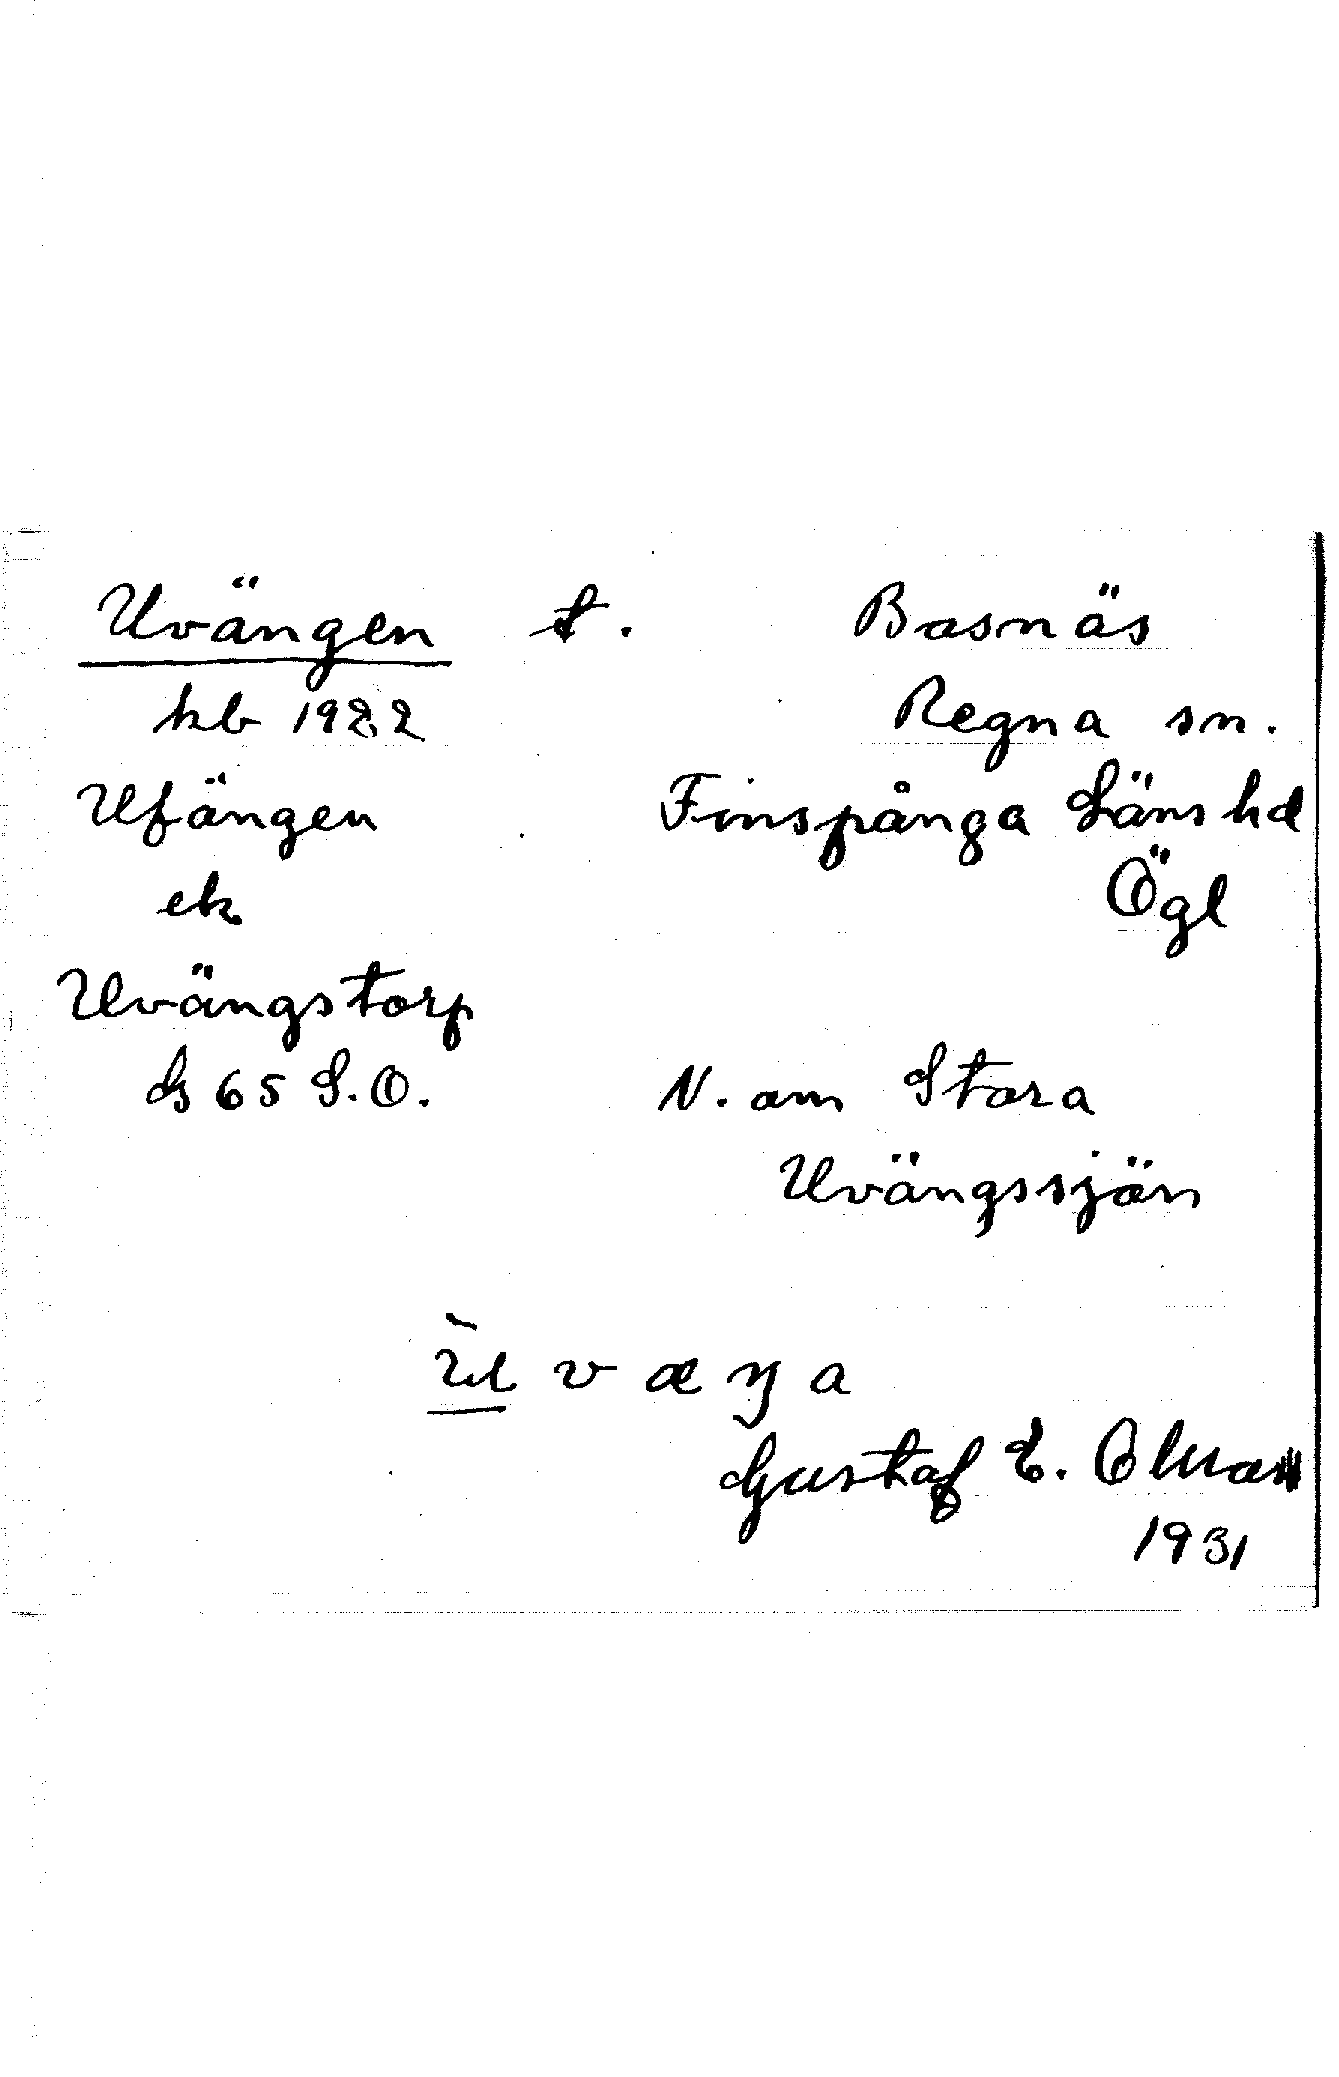 Uvängen t. Basnäs
kb 1922 Regna sn.
Ufängen Finspånga Läns hd
ek Ögl
Uvängstorp
G 65 S.O. N. om Stora
Uvängssjön
ù v æ ŋ a
Gustaf E.
1931